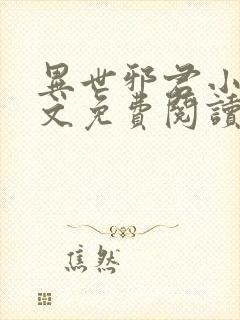 異世邪君小
文免費閱讀
焦然